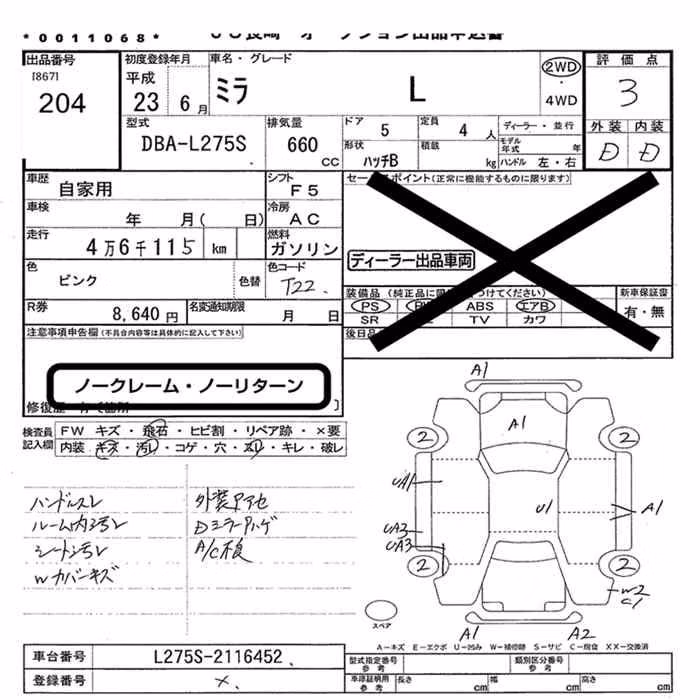 *0011068*
出品番号
[867]
204
初度登録年月
平成
23 6月
車名・グレード
ミラ L
2WD
・
4WD
評価点
3
外装 内装
D D
型式
DBA-L275S
排気量
660
CC
ドア
5
定員
4 人
ディーラー・並行
モデル年式 年
形状
ハッチB
積載
kg
ハンドル 左・右
車歴
自家用
シフト
F5
車検
年 月( 日)
冷房
AC
走行
4万6千115 km
燃料
ガソリン
色
ピンク
色替
色コード
T22
R券
8,640 円
名変通知期限
月 日
セールスポイント(正常に機能するものに限ります)
ディーラー出品車両
装備品
PS ABS エアB
SR TV カワ
新車保証書
有・無
後日
注意事項申告欄(不具合内容等は具体的に記入して下さい)
ノークレーム・ノーリターン
検査員
記入欄
FW キズ・飛石・ヒビ割・リペア跡・×要
内装 キズ・汚レ・コゲ・穴・スレ・キレ・破レ
ハンドルスレ 外装アセ
ルーム内汚レ Dミラーハゲ
シート汚レ A/C不良
Wカバーキズ
A1
A1
2 2
UA1
U1
A1
UA2
UA3
2 2
W2
C1
スペア
A1 A2
A−キズ E−エクボ U−凹み W−補修跡 S−サビ C−腐食 XX−交換済
車台番号
L275S-2116452
登録番号
×
型式指定番号
参考
類別区分番号
参考
車庫証明用
参考
長さ cm
幅 cm
高さ cm